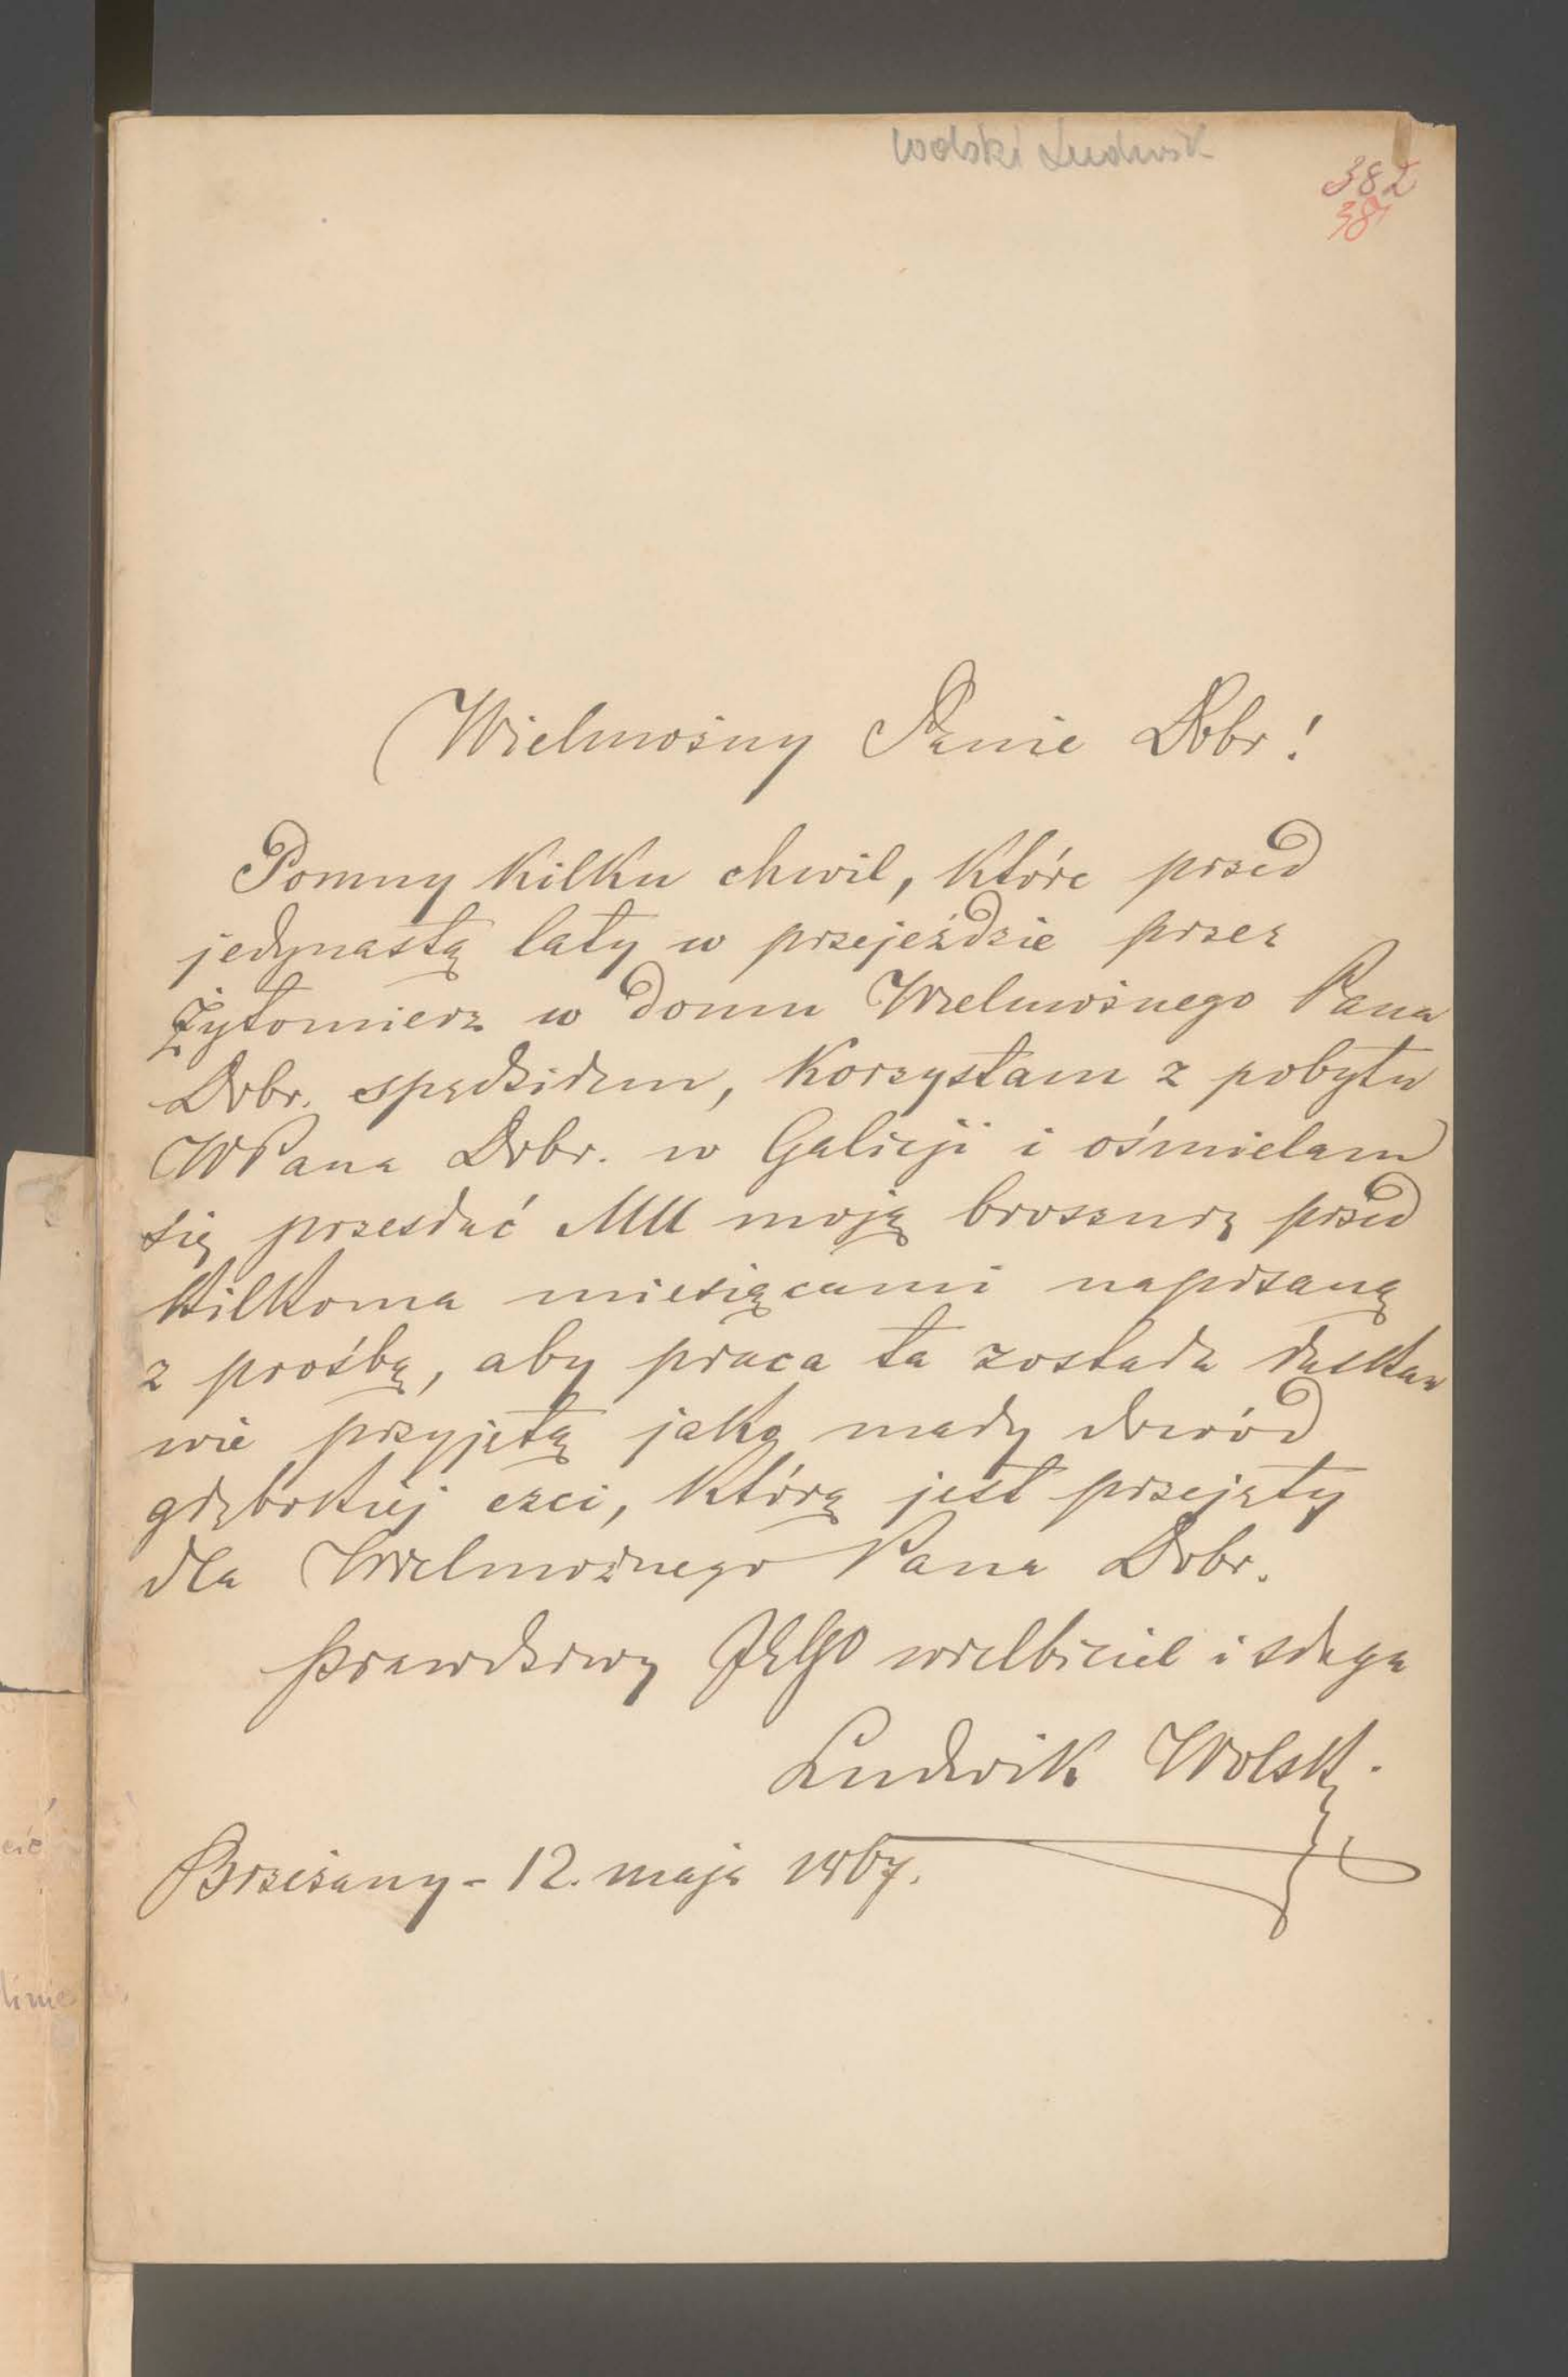 Wolski Ludwik
382
387
Wielmożny Panie Dobr!
Pomny kilku chwil, które przed
jedynastą laty w przejeździe przez
Żytomierz w domu Wielmożnego Pana
Dobr. spędziłem, korzystam z pobytu
WPana Dobr. w Galicji i ośmielam
się przesłać MU moją broszurę przed
kilkoma miesiącami napisaną
z prośbą, aby praca ta została łaska
wie przyjętą jako mały dowód
głębokiej czci, którą jest przejęty
dla Wielmożnego Pana Dobr.
prawdziwy JEGO wielbiciel i sługa
Ludwik Wolski.
Brzeżany - 12. maja 1867.